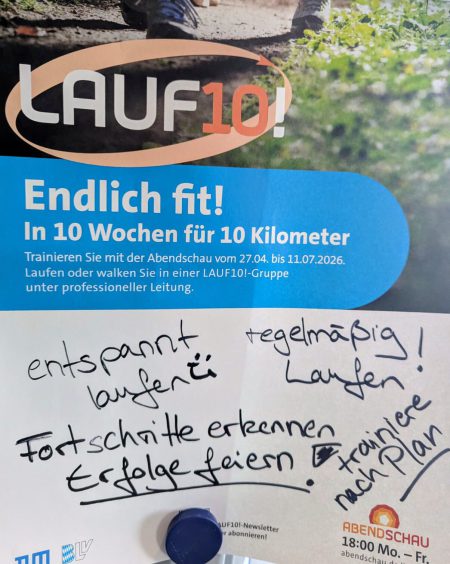 LAUF10!
Endlich fit!
In 10 Wochen für 10 Kilometer
Trainieren Sie mit der Abendschau vom 27.04. bis 11.07.2026.
Laufen oder walken Sie in einer LAUF10!-Gruppe
unter professioneller Leitung.
entspannt
laufen
regelmäßig!
Laufen
Fortschritte erkennen
Erfolge feiern!
trainiere
nach Plan
LAUF10!-Newsletter
abonnieren!
BLV
ABENDSCHAU
18:00 Mo. – Fr.